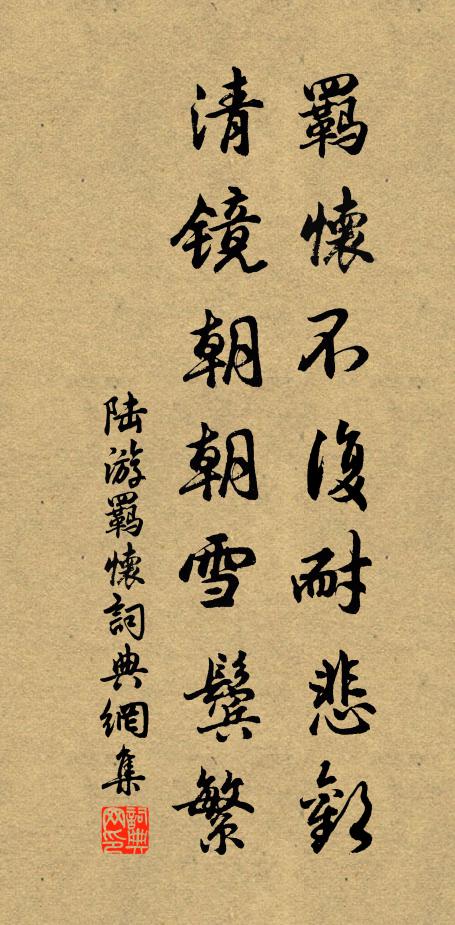 羈懷不復耐悲歡
清镜朝朝雪鬢繁
陆游羈懷詞典網集
詞典网印